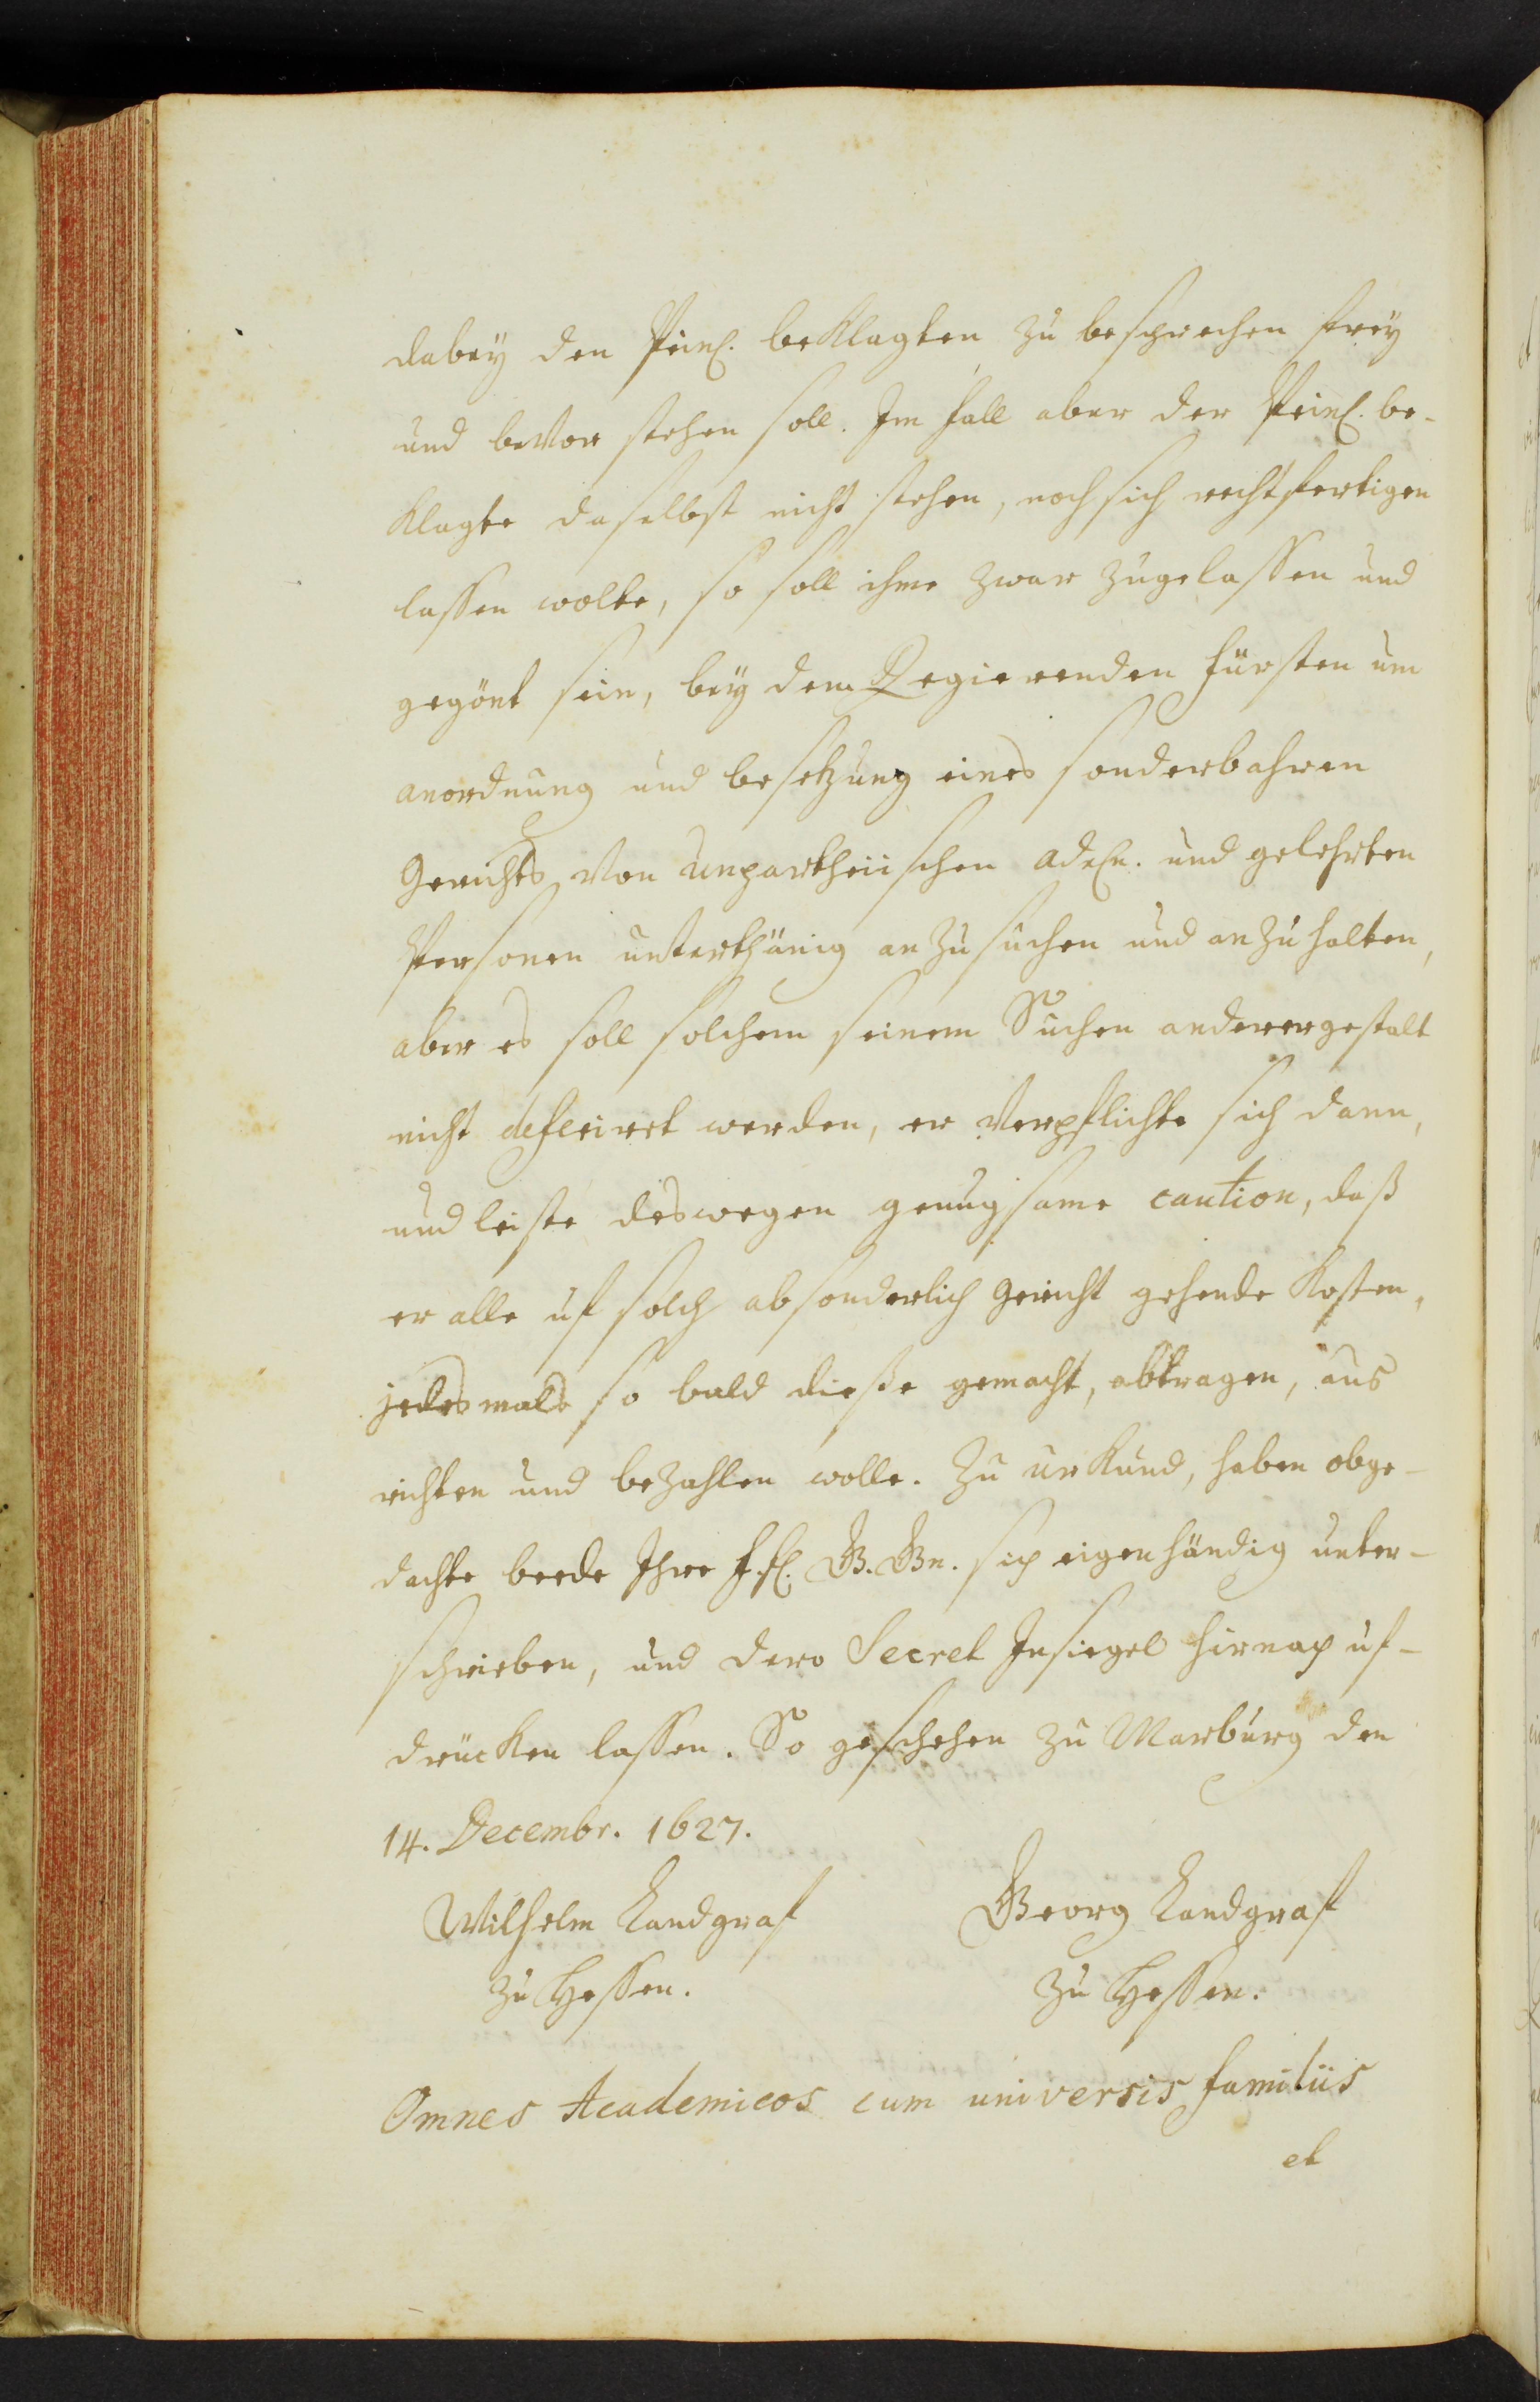 dabey den Peinl. beklagten zu besprechen frey
und bevor stehen soll. Im fall aber der Peinl. be-
klagte daselbst nicht stehen, noch sich rechtfertigen
lassen wolte, so soll ihme zwar zugelassen und
gegönt sein, bey dem Regierenden fürsten um
anordnung und besetzung eines sonderbahren
Gerichts von unpartheiischen Adeln. und gelehrten
Personen unterthänig anzusuchen und anzuhalten,
aber es soll solchem seinem Suchen anderergestalt
nicht deferiret werden, er verpflichte sich dann,
und leiste deswegen genugsame caution, daß
er alle uf solch absonderlich Gericht gehende Kosten,
jedesmals so bald dieße gemacht, abtragen, aus
richten und bezahlen wolle. Zu urkund, haben obge-
dachte beede Ihre f. fl. G. Gn. sich eigenhändig unter-
schrieben, und dero Secret Insiegel hirnach uf-
drücken lassen. So geschehen zu Marburg den
14. Decembr. 1627.
Wilhelm Landgraf Georg Landgraf
zu Hessen. zu Hessen.
Omnes Academicos cum universis familiis
et